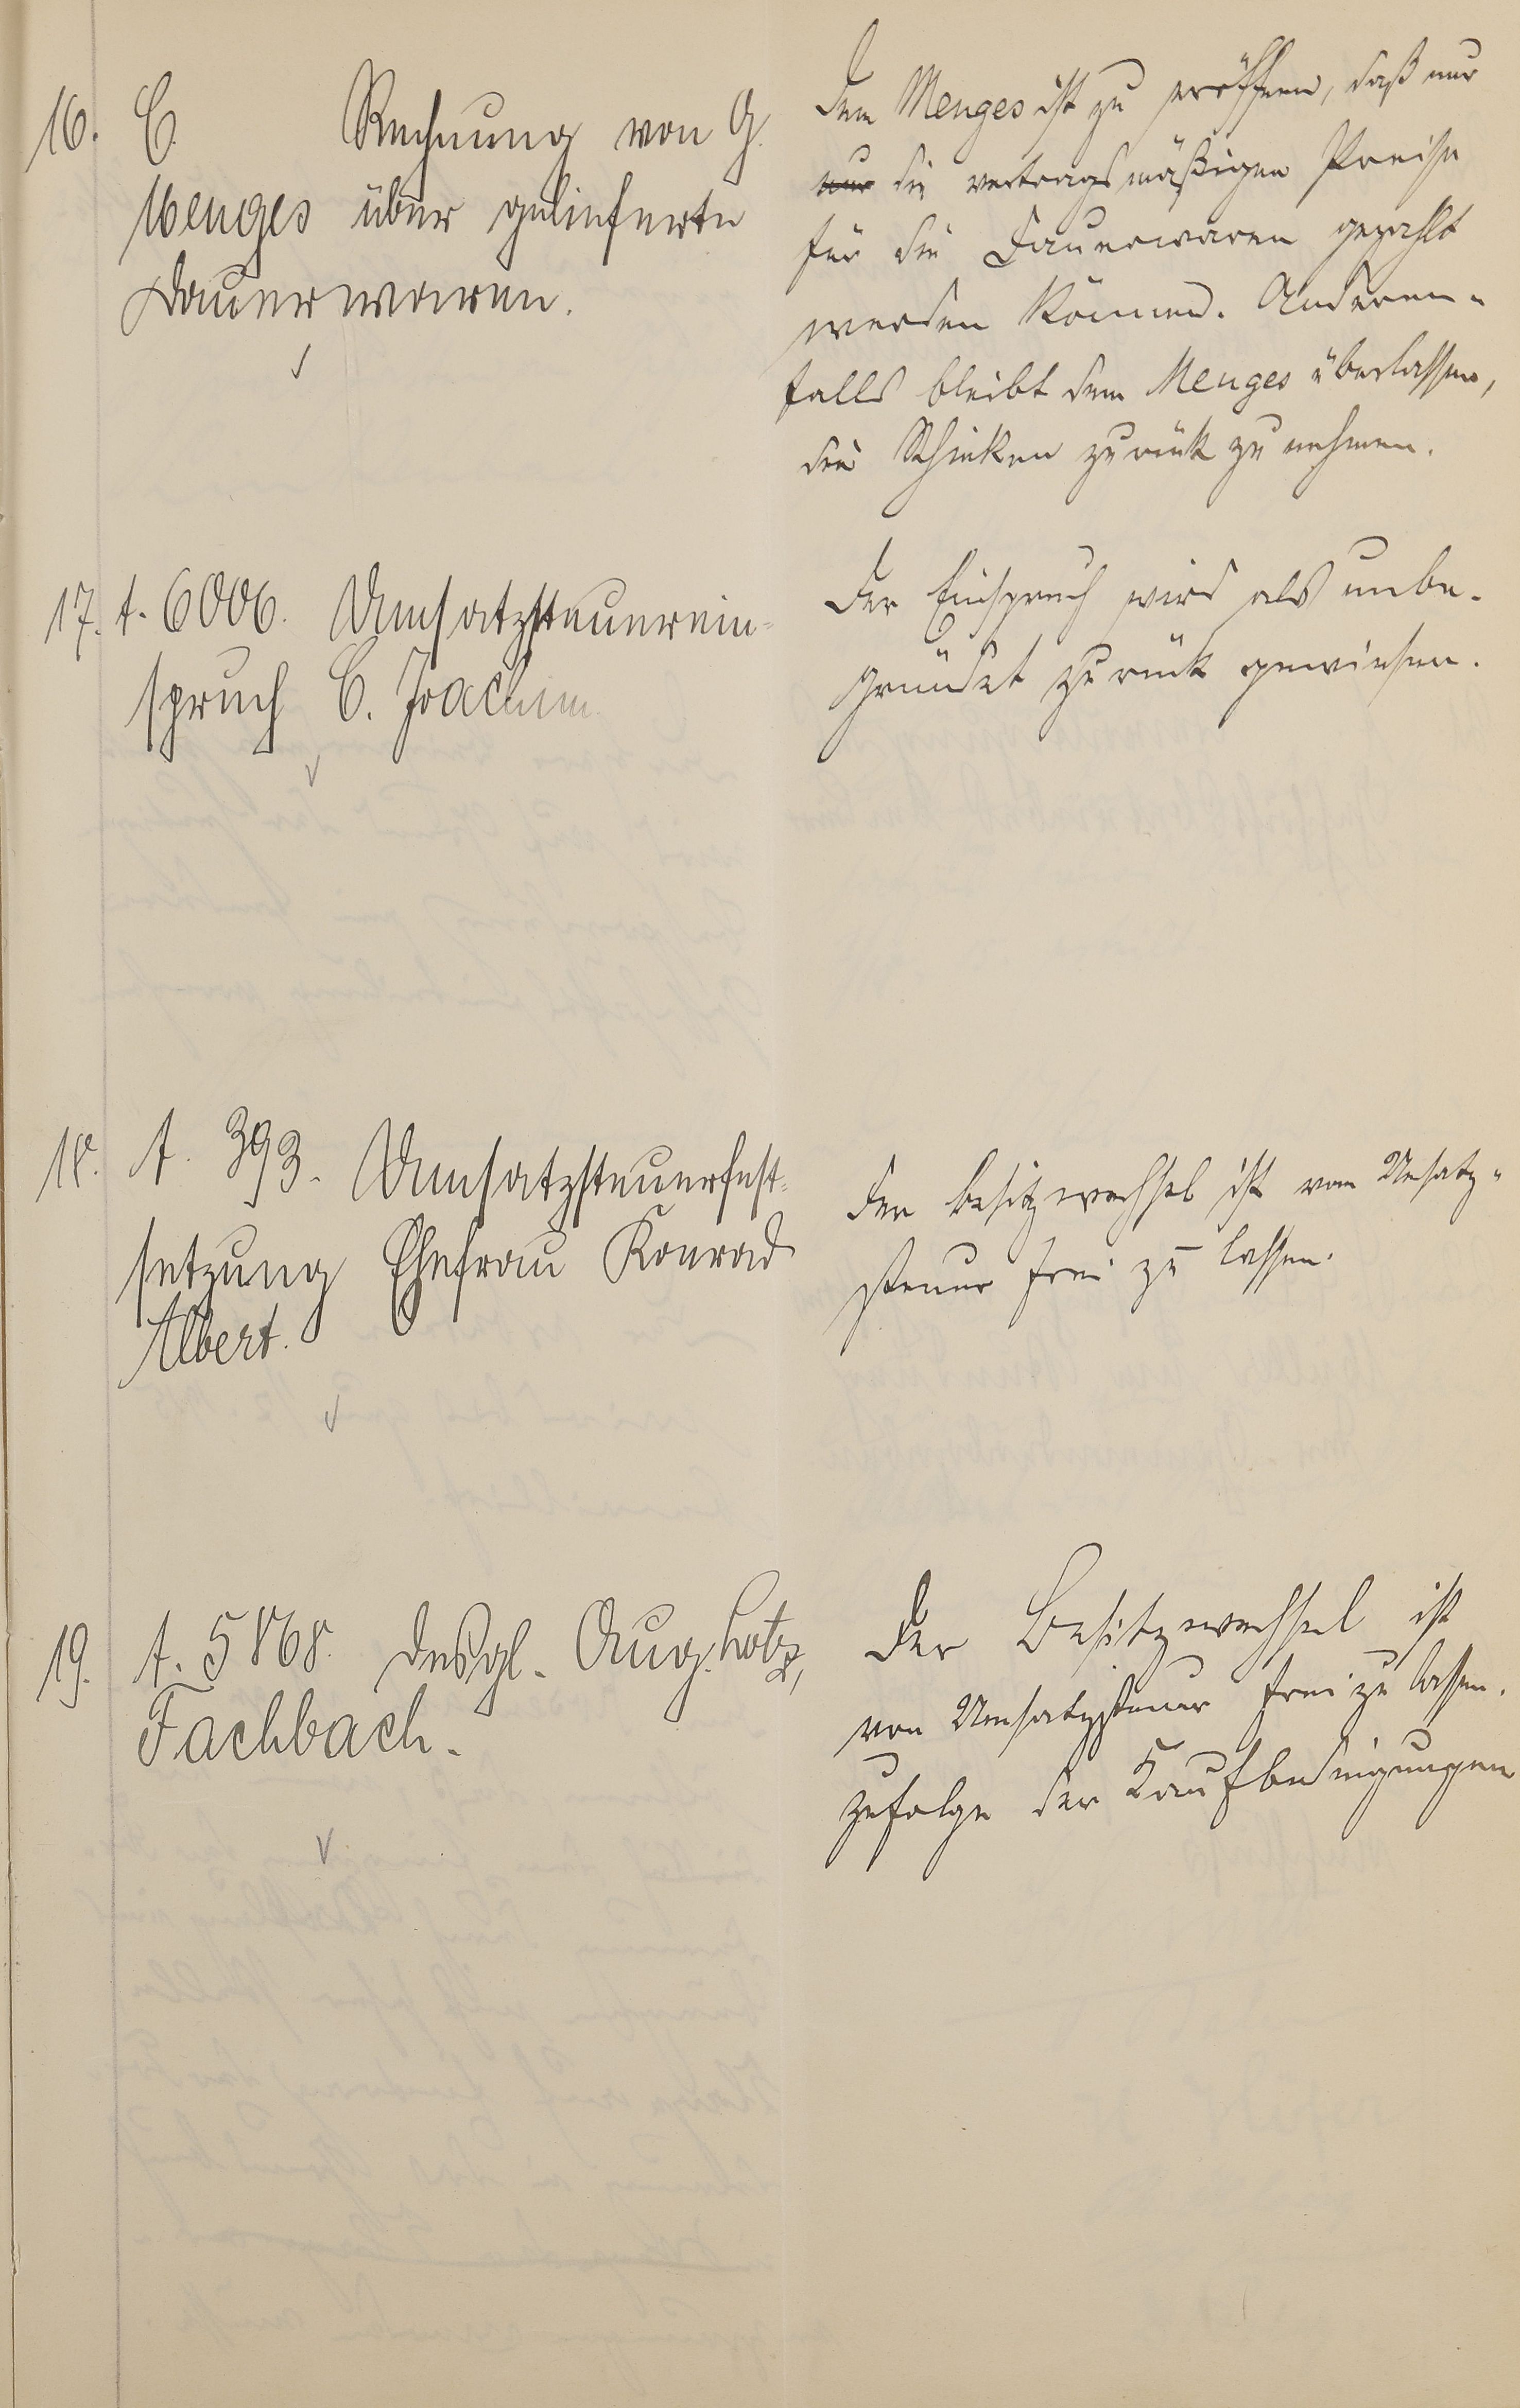 16. C. Rechnung von G.
Menges über gelieferte
Dauerwaren.
Dem Menges ist zu eröffnen, daß nur
nur die vertragsmäßigen Preise
für die Dauerwaren gezahlt
werden können. Anderen-
falls bleibt dem Menges überlassen,
die Schinken zurück zu nehmen.
17. A. 6006. Umsatzsteuerein-
spruch C. Joachim
Der Einspruch wird als unbe-
gründet zurück gewiesen.
18. A. 393. Umsatzsteuerfest-
setzung Ehefrau Konrad
Albert.
Der Besitzwechsel ist von Umsatz-
steuer frei zu lassen.
19. A. 5868. Desgl. Aug. Lotz,
Fachbach.
Der Besitzwechsel ist
von Umsatzsteuer frei zu lassen.
zufolge der Kaufbedingungen